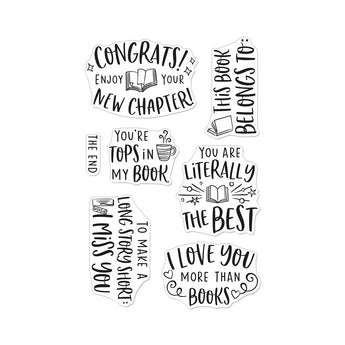 CONGRATS!
ENJOY YOUR
NEW CHAPTER!
THIS BOOK
BELONGS TO:
THE END
YOU'RE
TOPS IN
MY BOOK
YOU ARE
LITERALLY
THE BEST
TO MAKE A
LONG STORY SHORT:
I MISS YOU
I LOVE YOU
MORE THAN
BOOKS